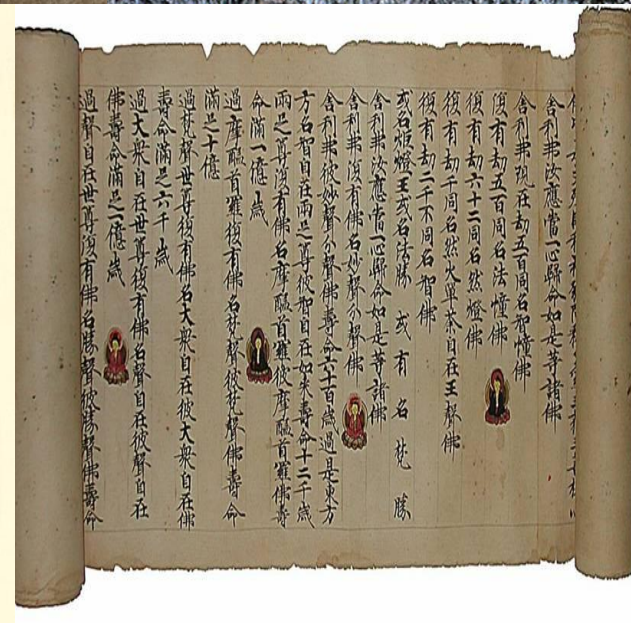 舍利弗汝應當一心歸命如是等諸佛
舍利弗現在劫五百同名智幢佛
復有劫五百同名法幢佛
復有劫六十二同名然燈佛
復有劫千同名然火單荼自在王聲佛
復有劫二千不同名智佛
或名熾燈王或名法勝 或有名梵勝
舍利弗汝應當一心歸命如是等諸佛
舍利弗復有佛名妙聲分聲佛
舍利弗彼妙聲分聲佛壽命六十百歲過是東方
方名智自在兩足尊彼智自在如來壽命十二千歲
兩足尊復有佛名摩醯首羅彼摩醯首羅佛壽
命滿一億歲
過摩醯首羅復有佛名梵聲彼梵聲佛壽命
滿足十億
過梵聲世尊復有佛名大衆自在彼大衆自在佛
壽命滿足六千歲
過大衆自在世尊復有佛名聲自在彼聲自在
佛壽命滿足一億歲
過聲自在世尊復有佛名勝聲彼勝聲佛壽命